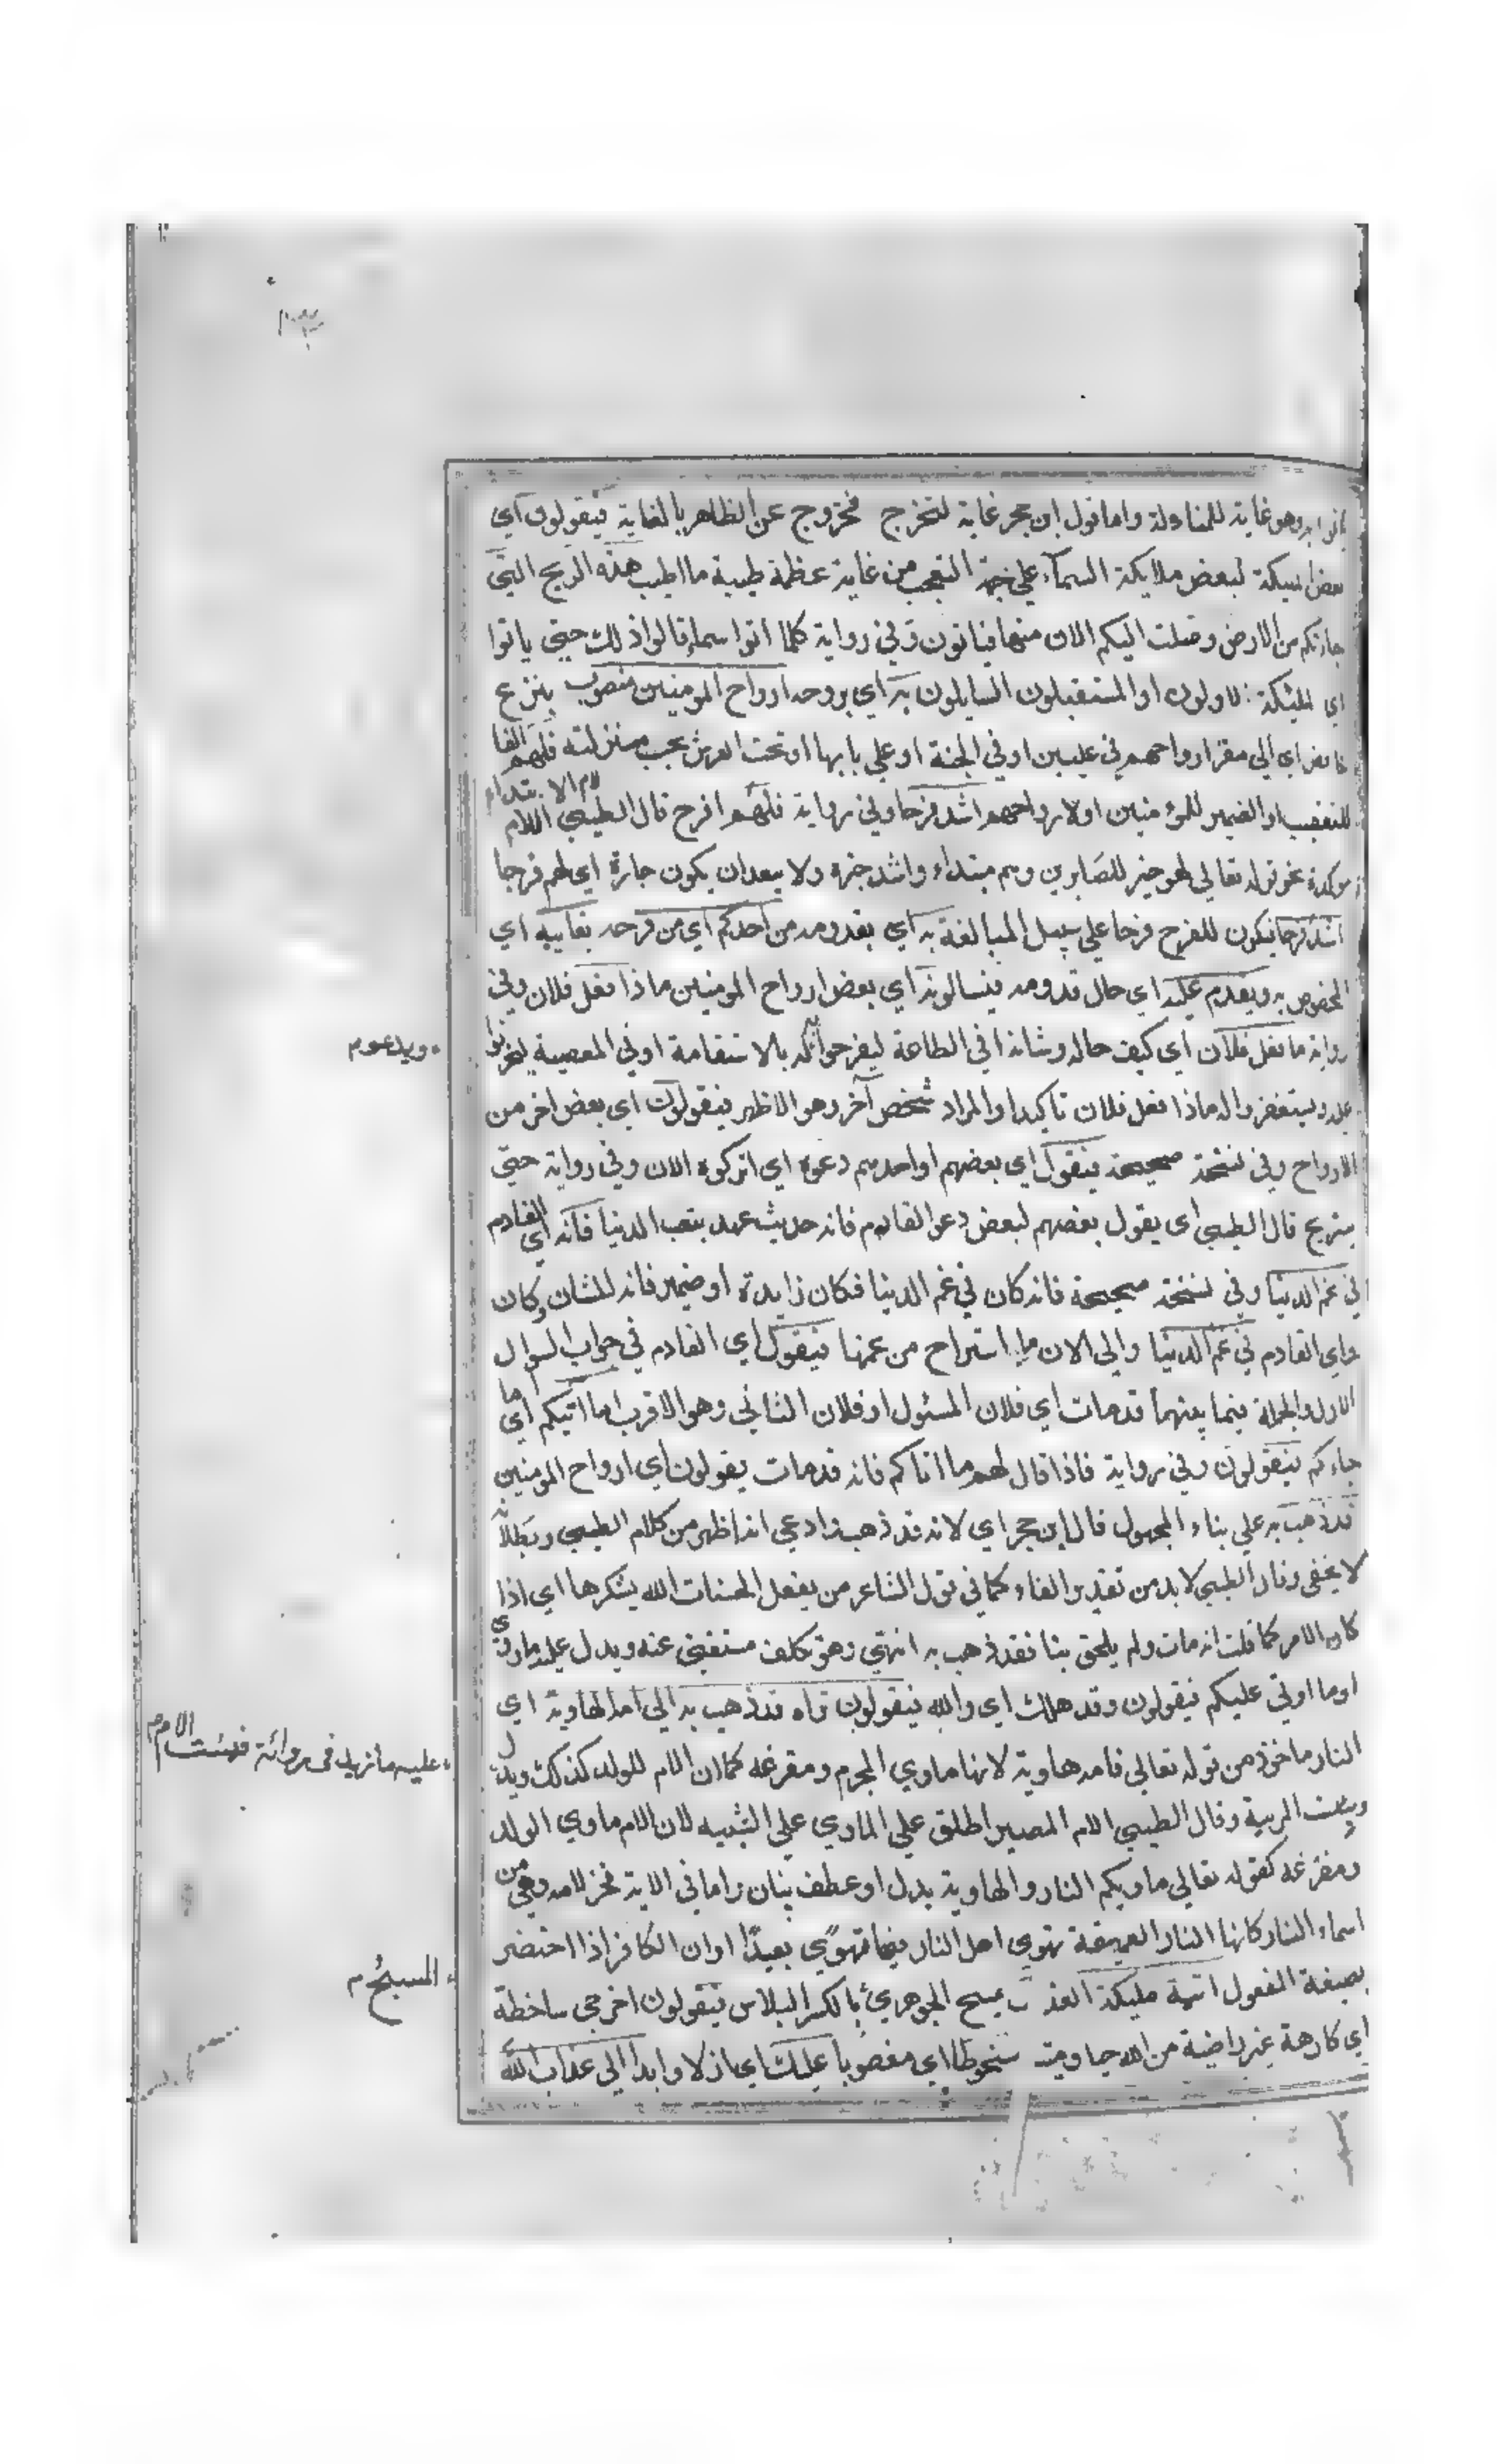 ياتوا به وهو غاية للمناولة واما قول ابن حجر غاية لتخرج فخروج عن الظاهر بالغاية فيقولون اي
بعض الملئكة لبعض ملايكة السماء علي جهة التعجب من غاية عظمة طيبة ما اطيب هذه الريح التي
جاءتكم من الارض وصلت اليكم الان منها فياتون وفي رواية كلما اتوا سماء قالوا ذلك حتي ياتوا
اي الملئكة الاولون او المستقبلون السايلون به اي بروحه ارواح المومنين منصوب بنزع
خافض اي الي مقر ارواحهم في عليين او في الجنة او علي بابها او تحت العرش بحب منزلته فلهم الفا
للتعقيب او الضمير للمؤمنين او لارواحهم اشد فرحا وفي رواية فلهم افرح قال الطيبي اللام لام الابتداء
موكدة نحو قوله تعالي لهو خير للصابرين وهم مبتداء واشد خبره ولا يبعد ان يكون جارة اي لهم فرحا
اشد فرحا فيكون للفرح فرحا علي سبيل المبالغة به اي بقدومه من احدكم اي من فرحه بغايبه اي
المخصوص به ويقدم عليه اي حال قدومه فيسالونه اي بعض ارواح المومنين ماذا فعل فلان وفي
رواية ما فعل فلان اي كيف حاله وشانه اي في الطاعة ليفرحوا له بالاستقامة او في المعصية ليحزنوا
عليه ويستغفروا له ماذا فعل فلان تاكيدا والمراد شخص آخر وهو الاظهر فيقولون اي بعض اخر من
الارواح وفي نسخة صحيحة فيقول اي بعضهم او احدهم دعوه اي اتركوه الان وفي رواية حتي
يستريح قال الطيبي اي يقول بعضهم لبعض دعوا القادم فانه حديث عهد بتعب الدنيا فانه اي القادم
في غم الدنيا وفي نسخة صحيحة فانه كان في غم الدنيا فكان زايدة او ضمير فانه للشان وكان
اي القادم في غم الدنيا والي الان ما استراح من غمها فيقول اي القادم في جواب السوال
الاول والجملة فيما بينهما قد مات اي فلان المسئول او فلان الثاني وهو الاقرب اما اتيكم اي ما
جاءكم فيقولون وفي رواية فاذا قال لهم ما اتاكم فانه قد مات يقولون اي ارواح المومنين
قد ذهب به علي بناء المجهول قال ابن حجر اي لانه قد ذهب وادعي انه اظهر من كلام الطيبي وبطلانه
لا يخفى وقال الطيبي لا بد من تقدير الفاء كما في قول الشاعر من يفعل الحسنات الله يشكرها اي اذا
كان الامر كما قلت انه مات ولم يلحق بنا فقد ذهب به انتهي وهو تكلف مستغني عنه ويدل عليه ما روي
اوما اوتي عليكم فيقولون وقد هلك اي والله فيقولون نراه قد ذهب به الي امه الهاوية اي
النار ماخوذ من قوله تعالي فامه هاوية لانها ماوي المجرم ومقرغه كما ان الام للولد كذلك ويدل
وبئست المربية وقال الطيبي الام المصير اطلق علي الماوي علي التشبيه لان الام ماوي الولد
ومفزعه كقوله تعالي ماويكم النار والهاوية بدل او عطف بيان واما في الاية فخبر لامه وهي من
اسماء النار كانها النار العميقة تهوي اهل النار فيها مهوي بعيدا وان الكافر اذا احتضر
بصيغة المفعول اتته مليكة العذاب بمسح الجوهري بالكسر البلاس فيقولون اخرجي ساخطة
اي كارهة غير راضية من الله حيا وميتة سخوطا اي مغضوبا عليك اي ازلا وابدا الي عذاب الله
ويدعو م
عليه ما نريد في رواية فبئست الام م
المسبح م